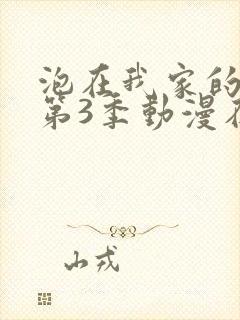 泡在我家的
第3季動漫在
山戎